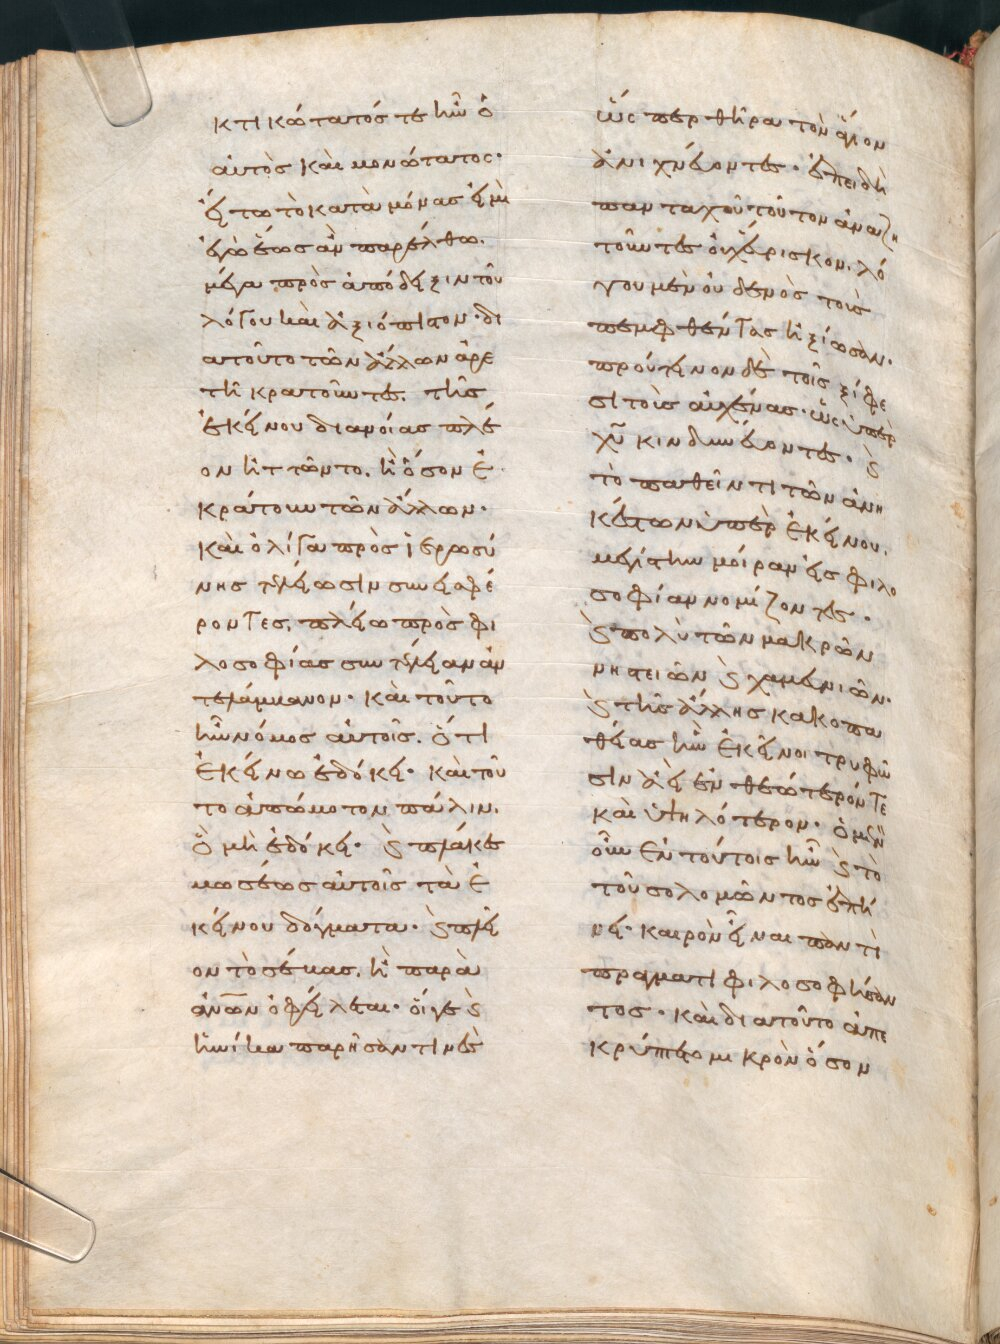 κτικώτατός τε ἦν ὁ
αὐτὸς καὶ μονώτατος·
ἐῤῥέτω τὸ κατὰ μόνας εἰμὶ
ἐγὼ ἕως ἂν παρέλθω.
μέγα πρὸς ἀπόδειξιν τοῦ
λόγου καὶ ἀξιόπιστον· δι
ατοῦτο τῶν ἄλλων ἀρε
τῆ κρατοῦντες. τῆς
ἐκείνου διανοίας πλέ
ον ἡττῶντο. ἢ ὅσον ἐ
κράτουν τῶν ἄλλων·
καὶ ὀλίγα πρὸς ἱερωσύ
νης τελείωσιν συνεισφέ
ροντες, πλείω πρὸς φι
λοσοφίας συντέλειαν ἀν
τελάμβανον· καὶ τοῦτο
ἦν νόμος αὐτοῖς. ὅτι
ἐκείνω ἐδόκει· καὶ τοῦ
το ἀπώμοτον πάλιν.
ὃ μὴ ἐδόκει· ϛ πλάκες
μωσέως αὐτοῖς τὰ ἐ
κείνου δόγματα· ϛ πλεῖ
ον τὸ σέβας. ἢ παρὰ
ἀνων ὀφείλεται· οἵγε ϛ
ἡνίκα παρῆσάν τινὲς
ὥς περ θῆρα τὸν ἅγιον
ἀνιχνεύοντες· ἐπειδὴ
πανταχοῦ τοῦτον ἀναζη
τοῦντες οὐχ εὕρισκον. λό
γου μὲν οὐδενὸς τοὺς
πεμφθέντας ἠξίωσαν.
προύτεινον δὲ τοῖς ξίφε
σι τοὺς αὐχένας· ὡς ὑπὲρ
χυ κινδυνεύοντες· ϛ
τὸ παθεῖν τι τῶν ἀνη
κέστων ὑπὲρ ἐκείνου.
μεγίστην μοίραν εἰς φιλο
σοφίαν νομίζοντες·
ϛ πολὺ τῶν μακρῶν
νηστειῶν ϛ χαμευνιῶν·
ϛ τῆς ἄλλης κακοπα
θείας ἣν ἐκεῖνοι τρυφῶ
σιν ἀεὶ ἐν θεώτερόν τε
καὶ ὑψηλότερον· ὁ μὲν
οὖν ἐν τούτοις ἦν ϛ τὸ
τοῦ σολομῶντος ἐπῄ
νει· καιρὸν εἶναι παντὶ
πράγματι φιλοσοφήσαν
τος· καὶ διατοῦτο ἀπε
κρύπτετο μικρὸν ὅσον